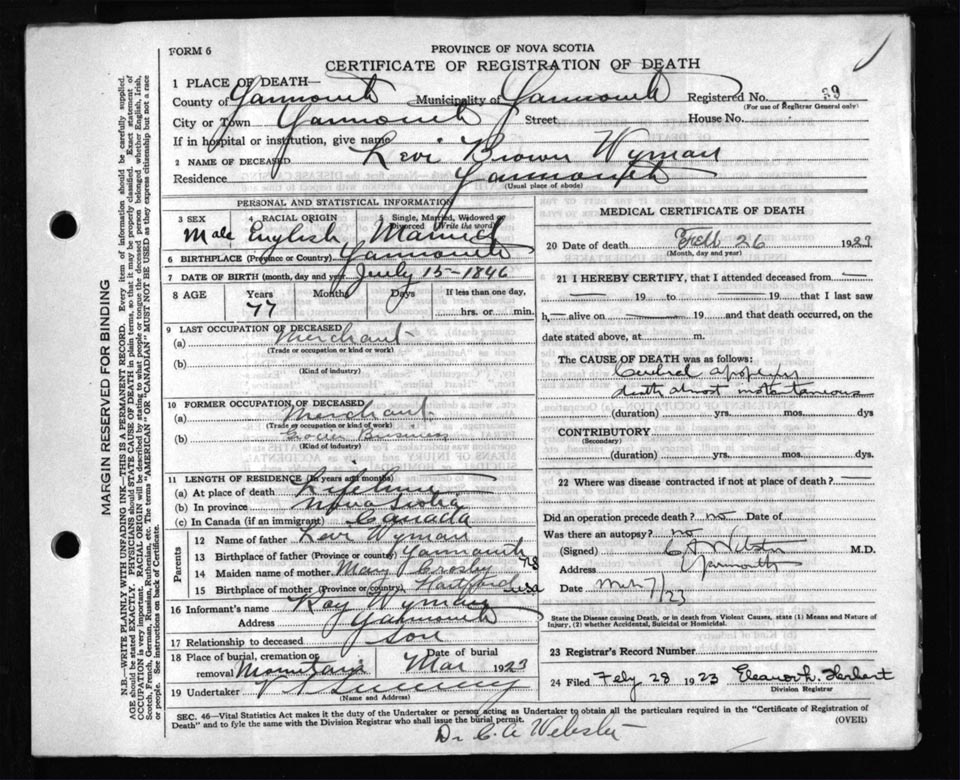 FORM 6
PROVINCE OF NOVA SCOTIA
CERTIFICATE OF REGISTRATION OF DEATH
MARGIN RESERVED FOR BINDING
N.B.—WRITE PLAINLY WITH UNFADING INK—THIS IS A PERMANENT RECORD. Every item of information should be carefully supplied.
AGE should be stated EXACTLY. PHYSICIANS should STATE CAUSE OF DEATH in plain terms, so that it may be properly classified. Exact statement of
OCCUPATION is very important. RACIAL ORIGIN will be described by stating to what people or tongue the deceased person belonged whether English, Irish,
Scotch, French, German, Russian, Ruthenian, etc. The terms "AMERICAN" OR "CANADIAN" MUST NOT BE USED as they express citizenship but not a race
or people. See instructions on back of Certificate.
1 PLACE OF DEATH—
County of Yarmouth Municipality of Yarmouth Registered No. 39
(For use of Registrar General only)
City or Town Yarmouth Street House No.
If in hospital or institution, give name
2 NAME OF DECEASED Levi Brown Wyman
Residence Yarmouth
(Usual place of abode)
PERSONAL AND STATISTICAL INFORMATION
3 SEX Male
4 RACIAL ORIGIN English
5 Single, Married, Widowed or Divorced (Write the word) Married
6 BIRTHPLACE (Province or Country) Yarmouth
7 DATE OF BIRTH (month, day and year) July 15-1846
8 AGE Years 77 Months Days If less than one day,
hrs. or min.
9 LAST OCCUPATION OF DECEASED
(a) Merchant
(Trade or occupation or kind or work)
(b)
(Kind of industry)
10 FORMER OCCUPATION OF DECEASED
(a) Merchant
(Trade or occupation or kind of work)
(b) Business
(Kind of industry)
11 LENGTH OF RESIDENCE (In years and months)
(a) At place of death Lifetime
(b) In province Nova Scotia
(c) In Canada (if an immigrant) Canada
Parents
12 Name of father Levi Wyman
13 Birthplace of father (Province or country) Yarmouth NS
14 Maiden name of mother Mary Crosby
15 Birthplace of mother (Province or country) Hartford USA
16 Informant's name Roy Wyman
Address Yarmouth
17 Relationship to deceased Son
18 Place of burial, cremation or removal Mountain Date of burial Mar 1923
19 Undertaker
(Name and Address)
MEDICAL CERTIFICATE OF DEATH
20 Date of death Feb 26 192
(Month, day and year)
21 I HEREBY CERTIFY, that I attended deceased from —
— 19 to — 19 that I last saw
h — alive on — 19 and that death occurred, on the
date stated above, at m.
The CAUSE OF DEATH was as follows:
Cerebral apoplexy
death almost instantaneous
(duration) yrs. mos. dys
CONTRIBUTORY
(Secondary)
(duration) yrs. mos. dys.
22 Where was disease contracted if not at place of death? —
Did an operation precede death? no Date of
Was there an autopsy? no
(Signed) C A Webster M.D.
Address Yarmouth
Date Mch 7/23
State the Disease causing Death, or in death from Violent Causes, state (1) Means and Nature of
Injury, (2) whether Accidental, Suicidal or Homicidal.
23 Registrar's Record Number
24 Filed Feby 28 1923 Eleanor L. Herbert
Division Registrar
SEC. 46—Vital Statistics Act makes it the duty of the Undertaker or person acting as Undertaker to obtain all the particulars required in the "Certificate of Registration of
Death" and to fyle the same with the Division Registrar who shall issue the burial permit.
(OVER)
Dr C. A Webster